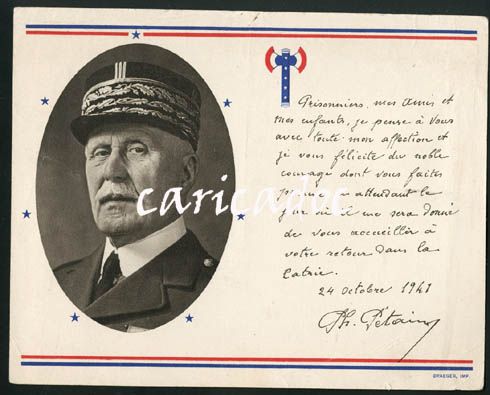 Prisonniers, mes amis et
mes enfants, je pense à vous
avec toute mon affection et
je vous félicite du noble
courage dont vous faites
preuve en attendant le
jour où il me sera donné
de vous accueillir à
votre retour dans la
Patrie.
24 octobre 1941
Ph. Pétain
caricadoc
DRAEGER, IMP.